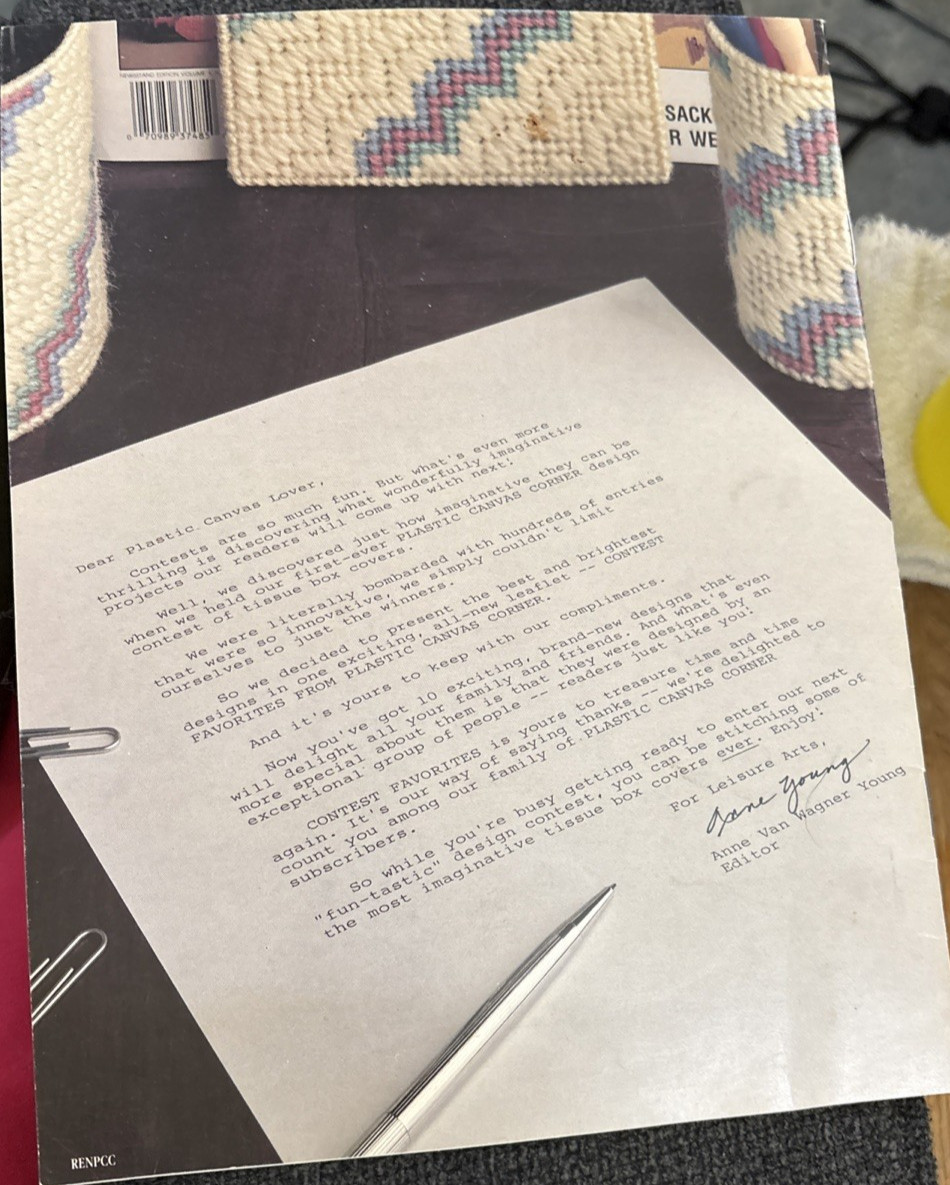 NEWSSTAND EDITION VOLUME
70989 37485
SACK
R WE
Dear Plastic Canvas Lover,
Contests are so much fun. But what's even more
thrilling is discovering what wonderfully imaginative
projects our readers will come up with next!
Well, we discovered just how imaginative they can be
when we held our first-ever PLASTIC CANVAS CORNER design
contest of tissue box covers.
We were literally bombarded with hundreds of entries
that were so innovative, we simply couldn't limit
ourselves to just the winners.
So we decided to present the best and brightest
designs in one exciting, all-new leaflet -- CONTEST
FAVORITES FROM PLASTIC CANVAS CORNER.
And it's yours to keep with our compliments.
Now you've got 10 exciting, brand-new designs that
will delight all your family and friends. And what's even
more special about them is that they were designed by an
exceptional group of people -- readers just like you!
CONTEST FAVORITES is yours to treasure time and time
again. It's our way of saying thanks -- we're delighted to
count you among our family of PLASTIC CANVAS CORNER
subscribers.
So while you're busy getting ready to enter our next
"fun-tastic" design contest, you can be stitching some of
the most imaginative tissue box covers ever. Enjoy!
For Leisure Arts,
Anne Young
Anne Van Wagner Young
Editor
RENPCC